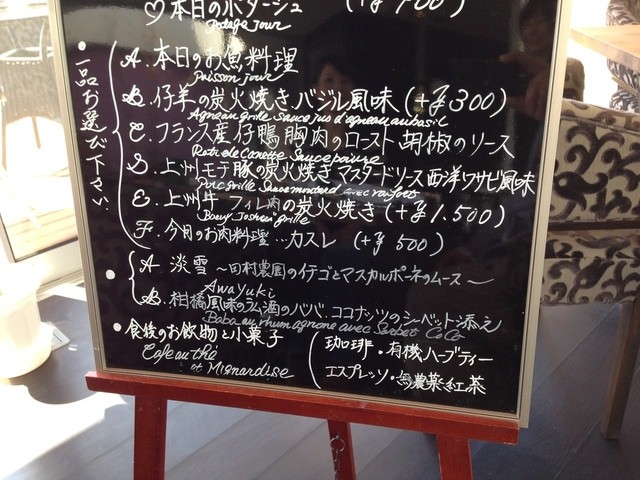 ♡本日のポタージュ (+¥700)
Potage jour
・一品お選び下さい
A. 本日のお魚料理
Poisson jour
B. 仔羊の炭火焼き、バジル風味 (+¥300)
Agneau grille Sauce jus d'agneau au basilic
C. フランス産仔鴨胸肉のロースト 胡椒のソース
Roti de Canette Sauce poivre
上州モチ豚の炭火焼き マスタードソース 西洋ワサビ風味
Porc grille Sauce moutard avec raifort
E. 上州牛 フィレ肉の炭火焼き (+¥1.500)
Boeuf Joshu grille
F. 今月のお肉料理…カスレ (+¥500)
・A. 淡雪 〜田村農園のイチゴとマスカルポーネのムース〜
Awayuki
B. 柑橘風味のラム酒のババ、ココナッツのシャーベット添え
Baba au rhum avec Sorbet CoCo
・食後のお飲物と小菓子
Cafe au thé et Mignardise
珈琲・有機ハーブティー
エスプレッソ・無農薬紅茶